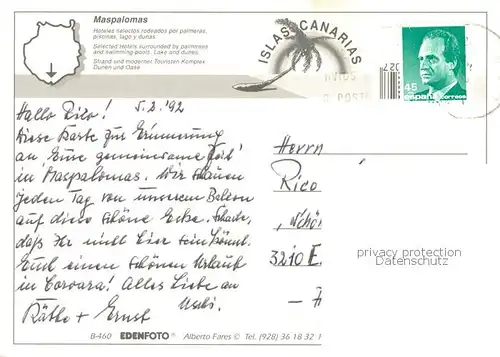 Maspalomas
Hoteles selectos rodeados por palmeras,
piscinas, lago y dunas.
Selected Hotels surrounded by palmtrees
and swimming-pools. Lake and dunes.
Strand und moderner Touristen Komplex
Dunen und Oase
ISLAS CANARIAS
45
España correos
Hallo Rico! 5.2.'92
Diese Karte zur Erinnerung
an Eure gemeinsame Zeit
in Maspalomas. Wir schauen
jeden Tag von unserem Balkon
auf diese schöne Ecke. Schade,
daß Ihr nicht hier sein könnt.
Euch einen schönen Urlaub
in Corvara! Alles Liebe an
Uschi.
Käthe + Ernst
Herrn
Rico
3210 E
privacy protection
Datenschutz
B-460 EDENFOTO Alberto Fares © Tel. (928) 36 18 32 1